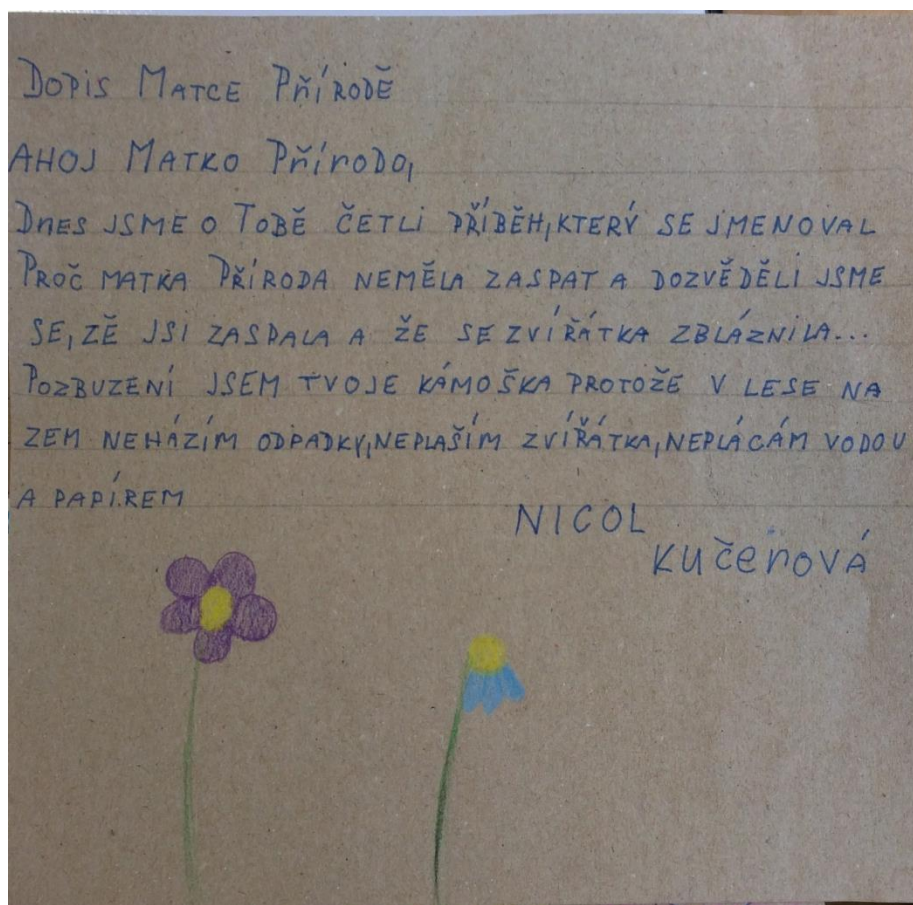 DOPIS MATCE PŘÍRODĚ
AHOJ MATKO PŘÍRODO,
DNES JSME O TOBĚ ČETLI PŘÍBĚH, KTERÝ SE JMENOVAL
PROČ MATKA PŘÍRODA NEMĚLA ZASPAT A DOZVĚDĚLI JSME
SE, ZĚ JSI ZASPALA A ŽE SE ZVÍŘÁTKA ZBLÁZNILA...
POZBUZENÍ JSEM TVOJE KÁMOŠKA PROTOŽE V LESE NA
ZEM NEHÁZÍM ODPADKY, NEPLAŠÍM ZVÍŘÁTKA, NEPLÁCÁM VODOU
A PAPÍREM
NICOL
KUČEROVÁ